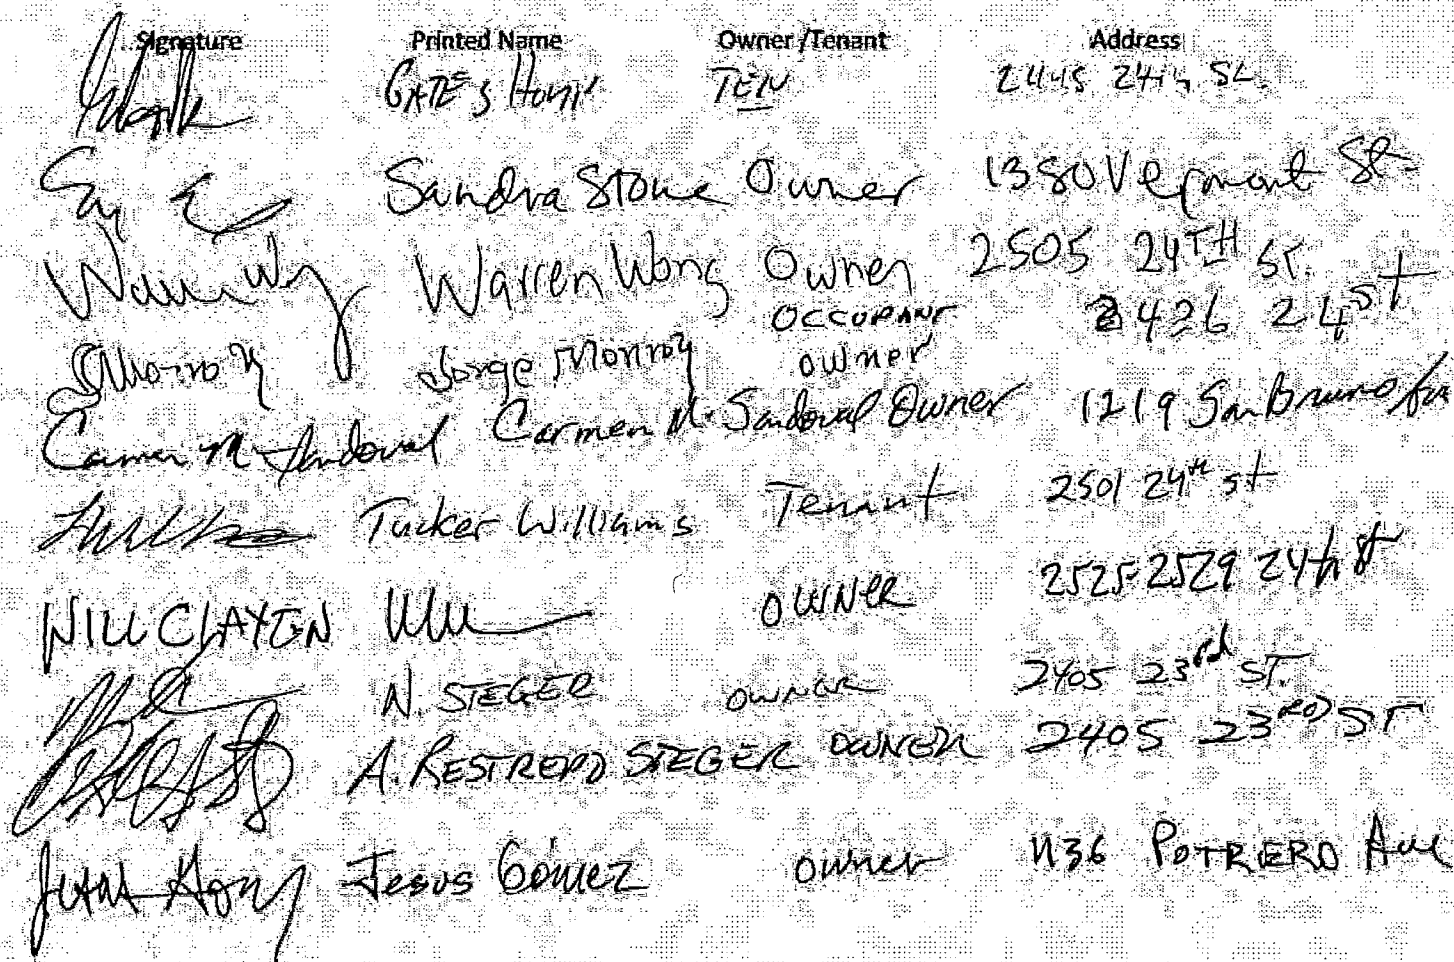 Signature Printed Name Owner/Tenant Address
GATES TEN 24th St.
Sandra Stone Owner 1380 Vermont St
Warren Wong Owner 2505 24TH ST.
Jorge Monroy OCCUPANT owner 2426 24 st
Carmen M. Sandoval Carmen M. Sandoval Owner 1219 San Bruno Ave
Tucker Williams Tenant 2501 24th st
WILL CLAYTON OWNER 2525-2529 24th St
N. STEGER OWNER 2405 23rd ST.
A. RESTREPO STEGER OWNER 2405 23RD ST
Jesus Gómez owner 1136 POTRERO Ave